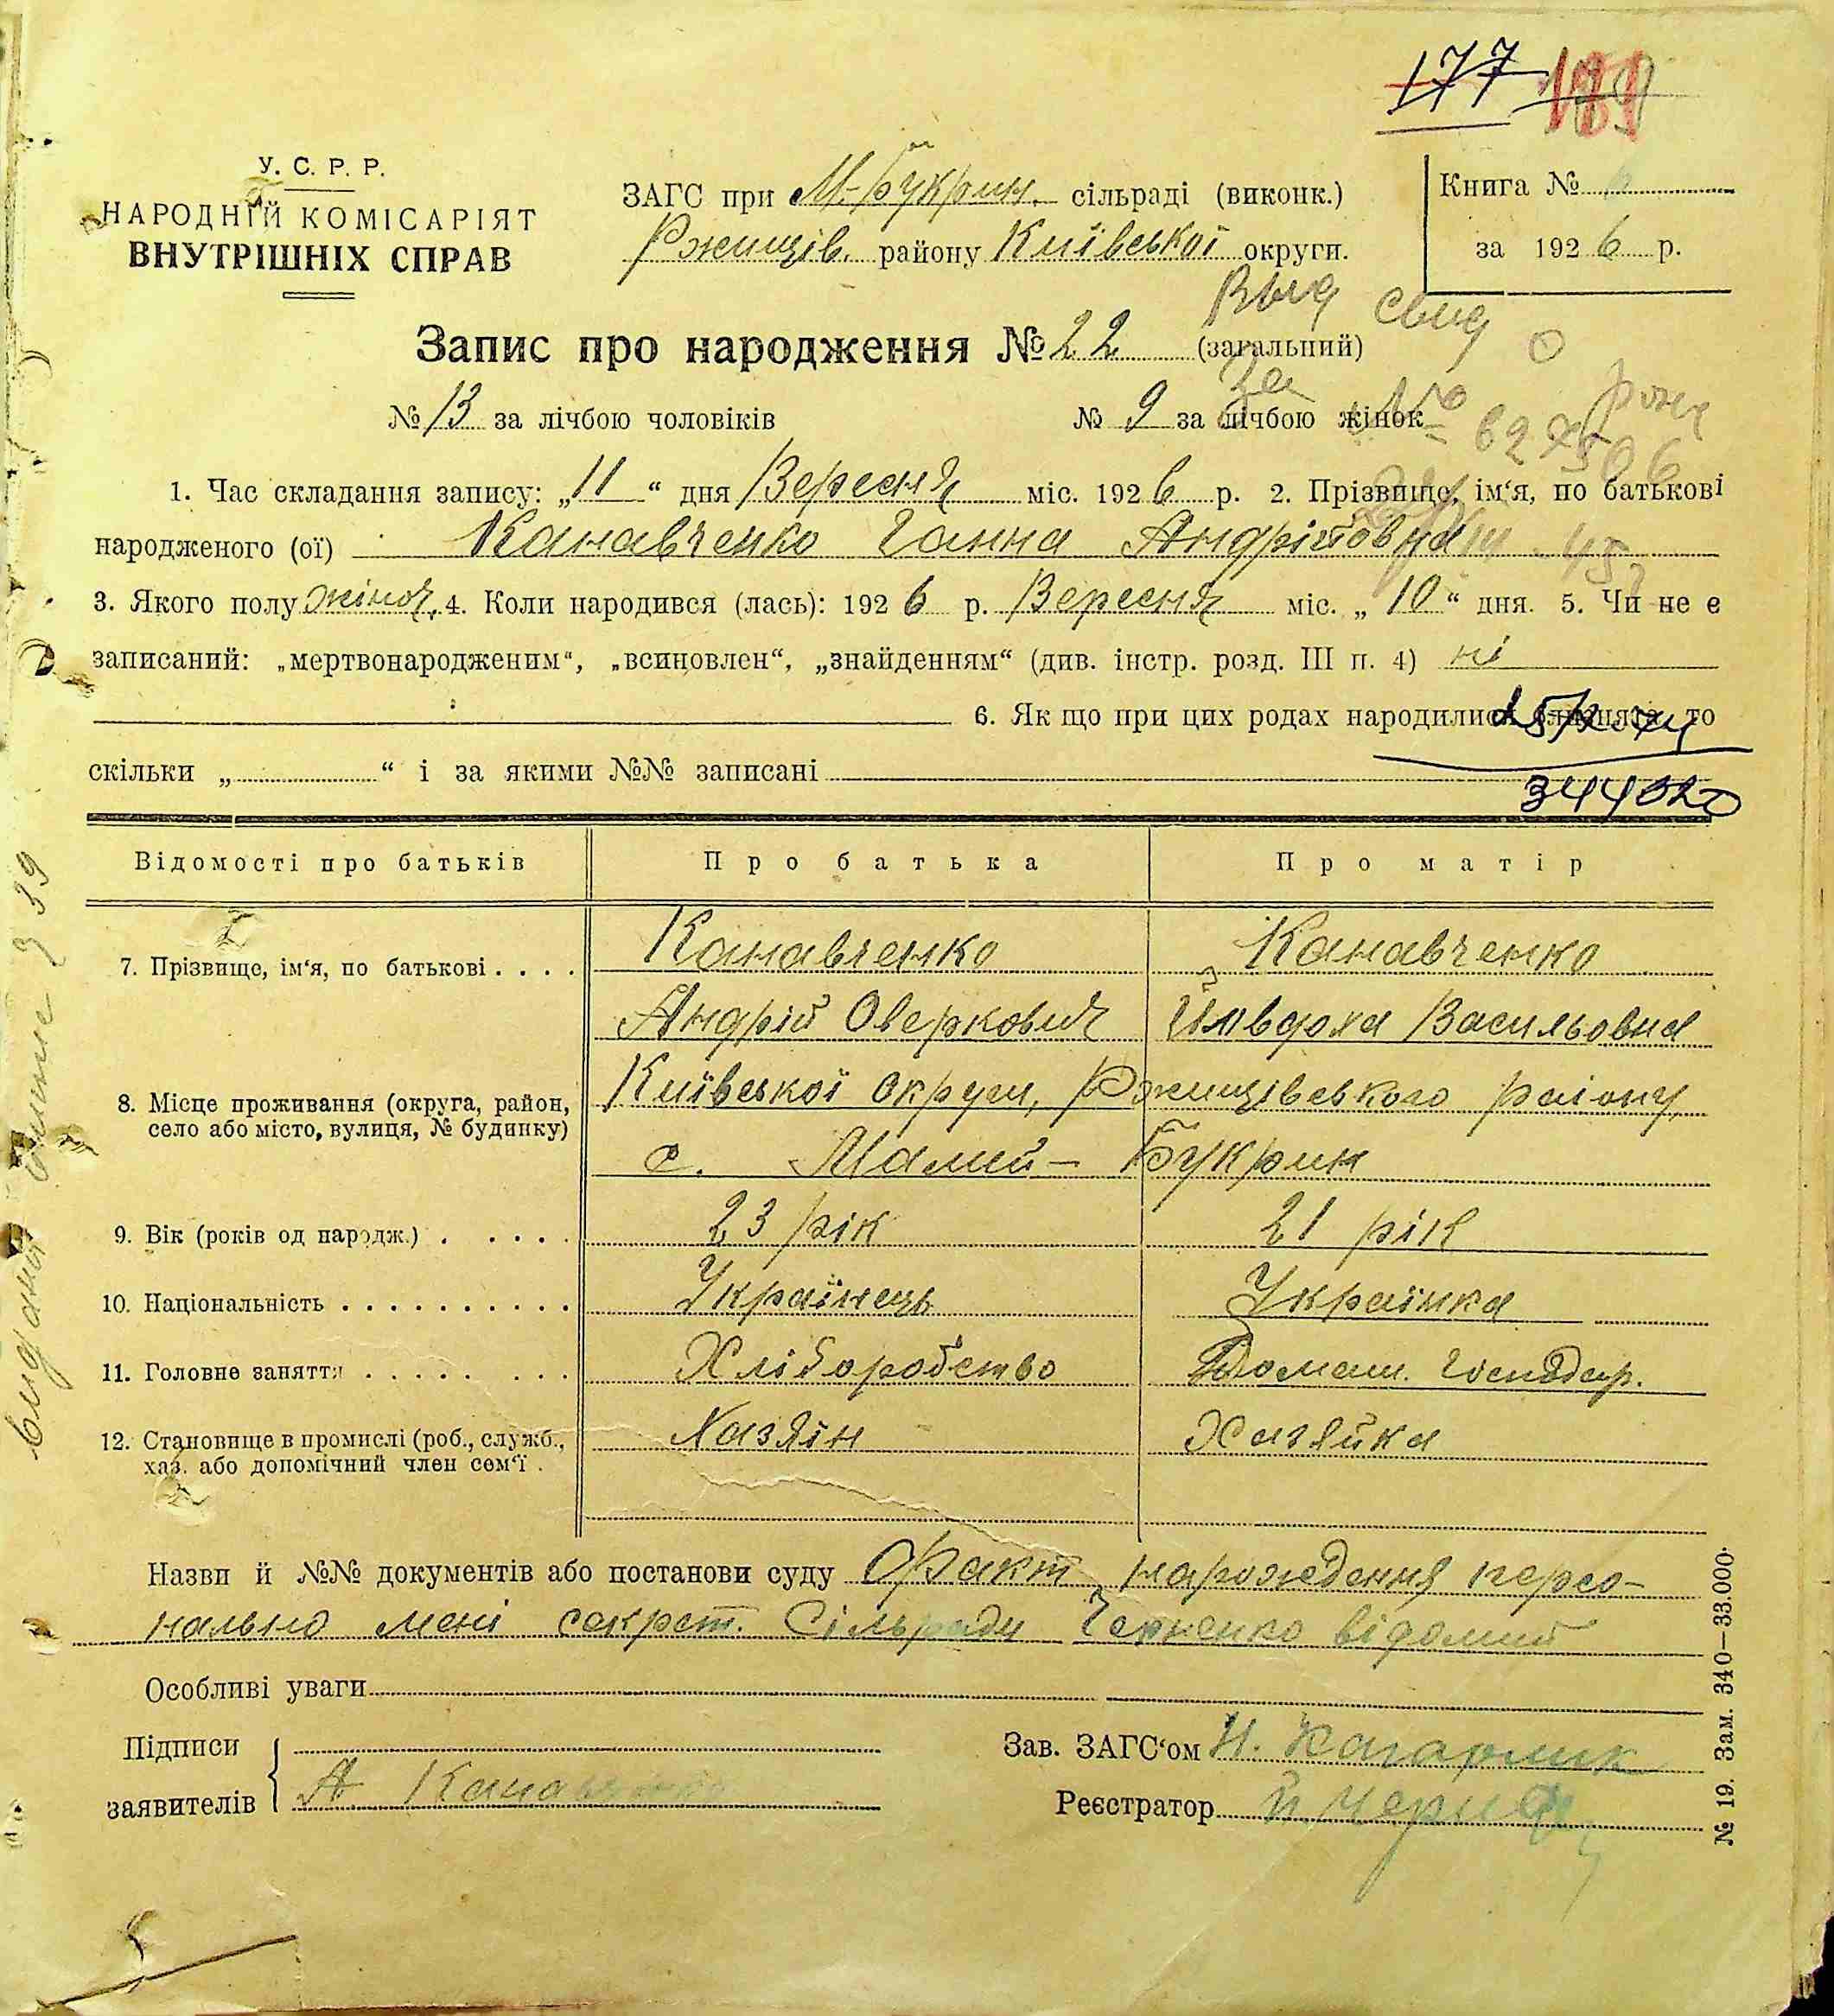 177 181
У. С. Р. Р.
НАРОДНІЙ КОМІСАРІЯТ
ВНУТРІШНІХ СПРАВ
ЗАГС при М.-Букрин. сільраді (виконк.)
Ржищів. району Київської округи.
Книга №
за 1926 р.
Запис про народження № 22 (загальний)
Выд свид о
№ 13 за лічбою чоловіків № 9 за лічбою жінок
За № рож
1. Час складання запису: „11“ дня Вересня міс. 1926 р. 2. Прізвище, ім‘я, по батькові
народженого (ої) Канавченко Ганна Андрійовна
3. Якого полу жіноч. 4. Коли народився (лась): 1926 р. Вересня міс. „10“ дня. 5. Чи не є
записаний: „мертвонародженим“, „всиновлен“, „знайденням“ (див. інстр. розд. III п. 4) ні
6. Як що при цих родах народилися близнята, то
скільки „ “ і за якими №№ записані
344020
Відомості про батьків Про батька Про матір
7. Прізвище, ім‘я, по батькові . . . . Канавченко Канавченко
Андрій Оверкович Явдоха Васильовна
8. Місце проживання (округа, район, Київської округи, Ржищівського району,
село або місто, вулиця, № будинку)
с. Малий-Букрин
9. Вік (років од народж.) . . . . . 23 рік 21 рік
10. Національність . . . . . . . . . . . Українець Українка
11. Головне заняття . . . . . . . . Хліборобство Домаш. господар.
12. Становище в промислі (роб., служб., Хазяїн Хазяйка
хаз. або допомічний член сем‘ї .
Назви й №№ документів або постанови суду Факт народження персо-
нально мені секрет. Сільради Черненко відомий
Особливі уваги
Підписи
заявителів А Канавченко
Зав. ЗАГС‘ом Н. Кагарлик
Реєстратор
№ 19. Зам. 340—33.000.